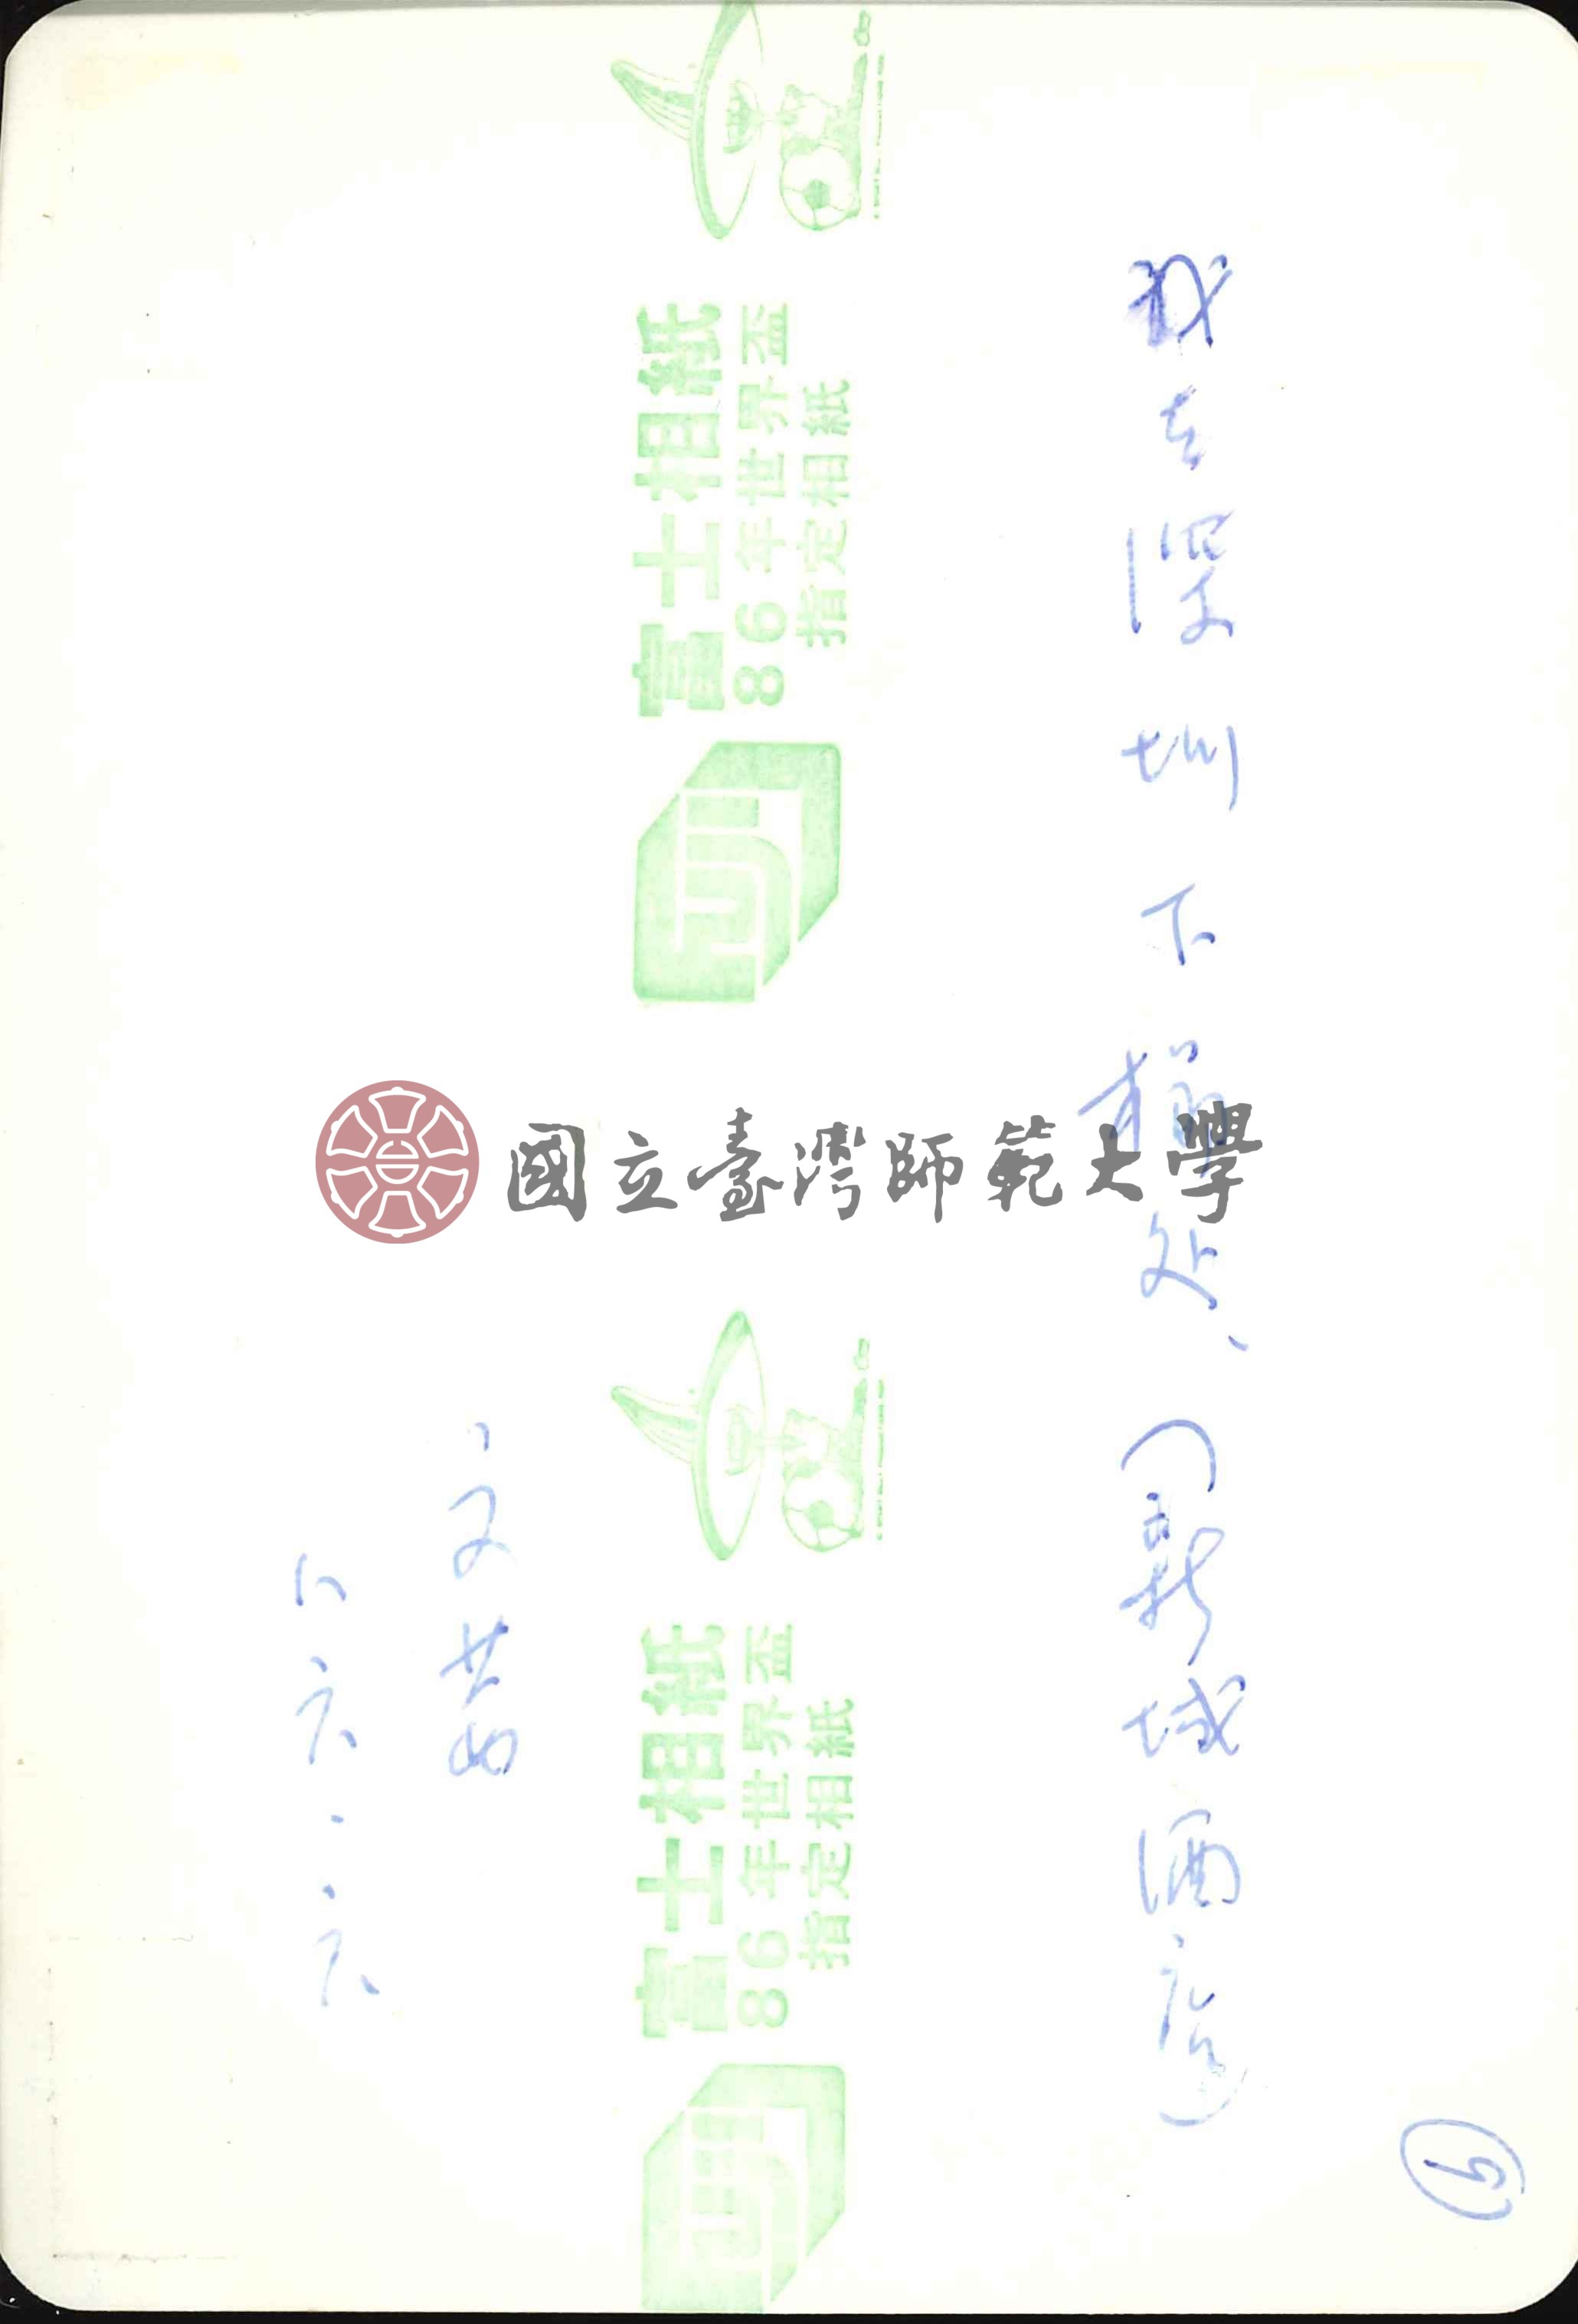 我在深圳下榻处、(新城酒店)
⑤
富士相紙
86年世界盃
指定相紙
FUJI
富士相紙
86年世界盃
指定相紙
FUJI
國立臺灣師範大學
八六.六